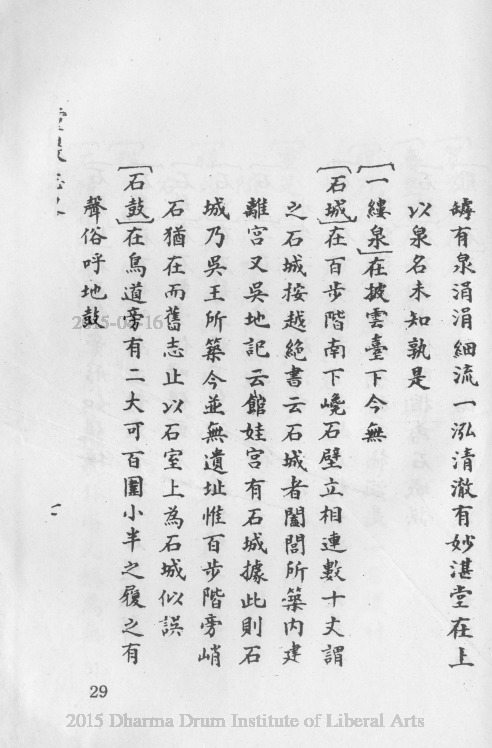 罅有泉涓涓細流一泓清澈有妙湛堂在上
以泉名未知孰是
[一縷泉]在披雲臺下今無
[石城]在百步階南下嶢石壁立相連數十丈謂
之石城按越絕書云石城者闔閭所築內建
離宮又吳地記云館娃宮有石城據此則石
城乃吳王所築今並無遺址惟百步階旁峭
石猶在而舊志止以石室上為石城似誤
[石鼓]在鳥道旁有二大可百圍小半之履之有
聲俗呼地鼓
29
2015 Dharma Drum Institute of Liberal Arts